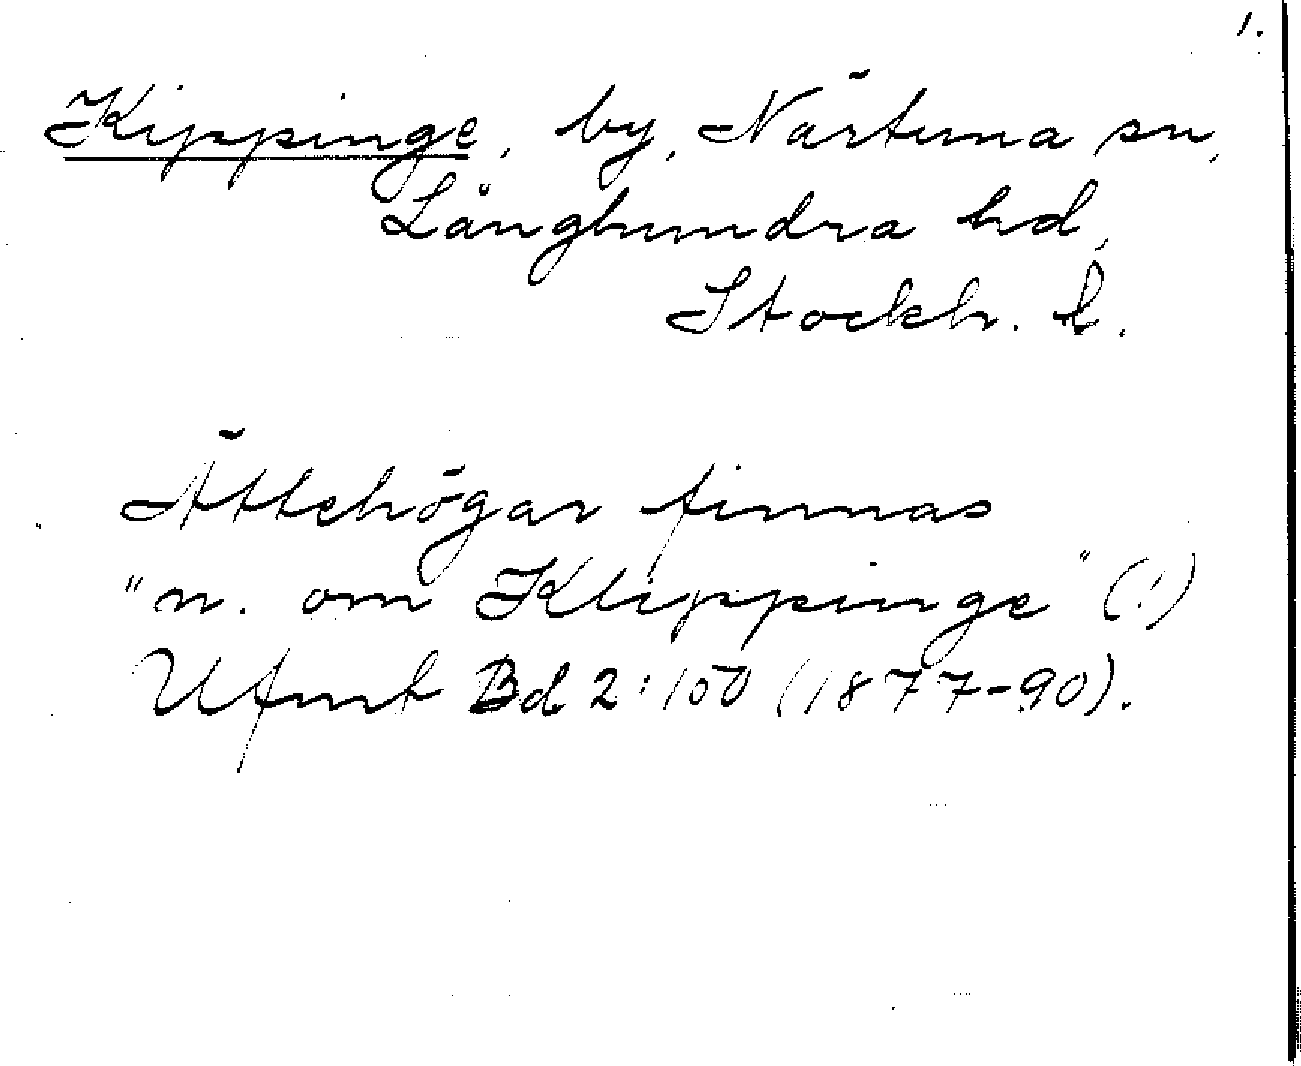 1.
Kippinge, by, Närtuna sn,
Långhundra hd,
Stockh. l.
Ättehögar finnas
"n. om Klippinge" (!)
Ufmt Bd 2:150 (1877-90).